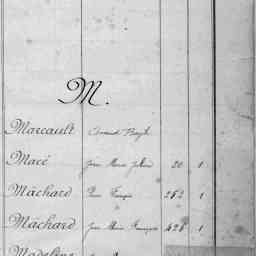 M.
Marcault
Macé Jean Marie Julien 20 1
Mâchard Pierre François 252 1
Mâchard Jean Marie François 428 1
Madeline